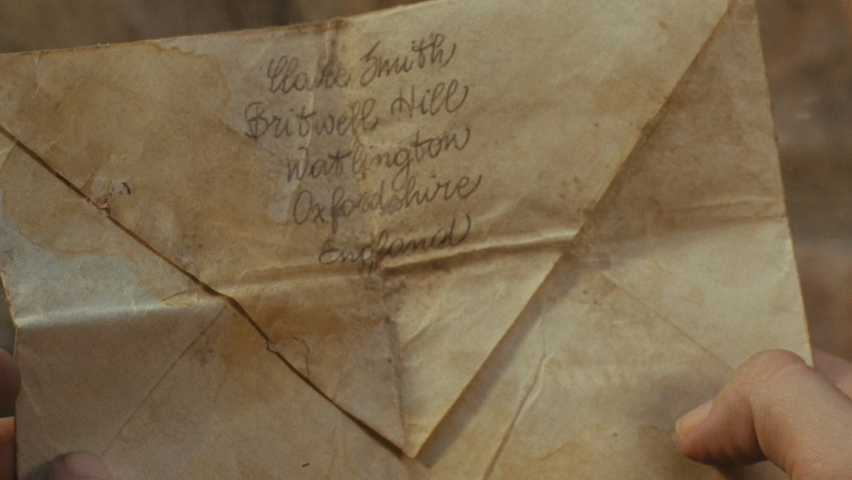 Clare Smith
Britwell Hill
Watlington
Oxfordshire
England